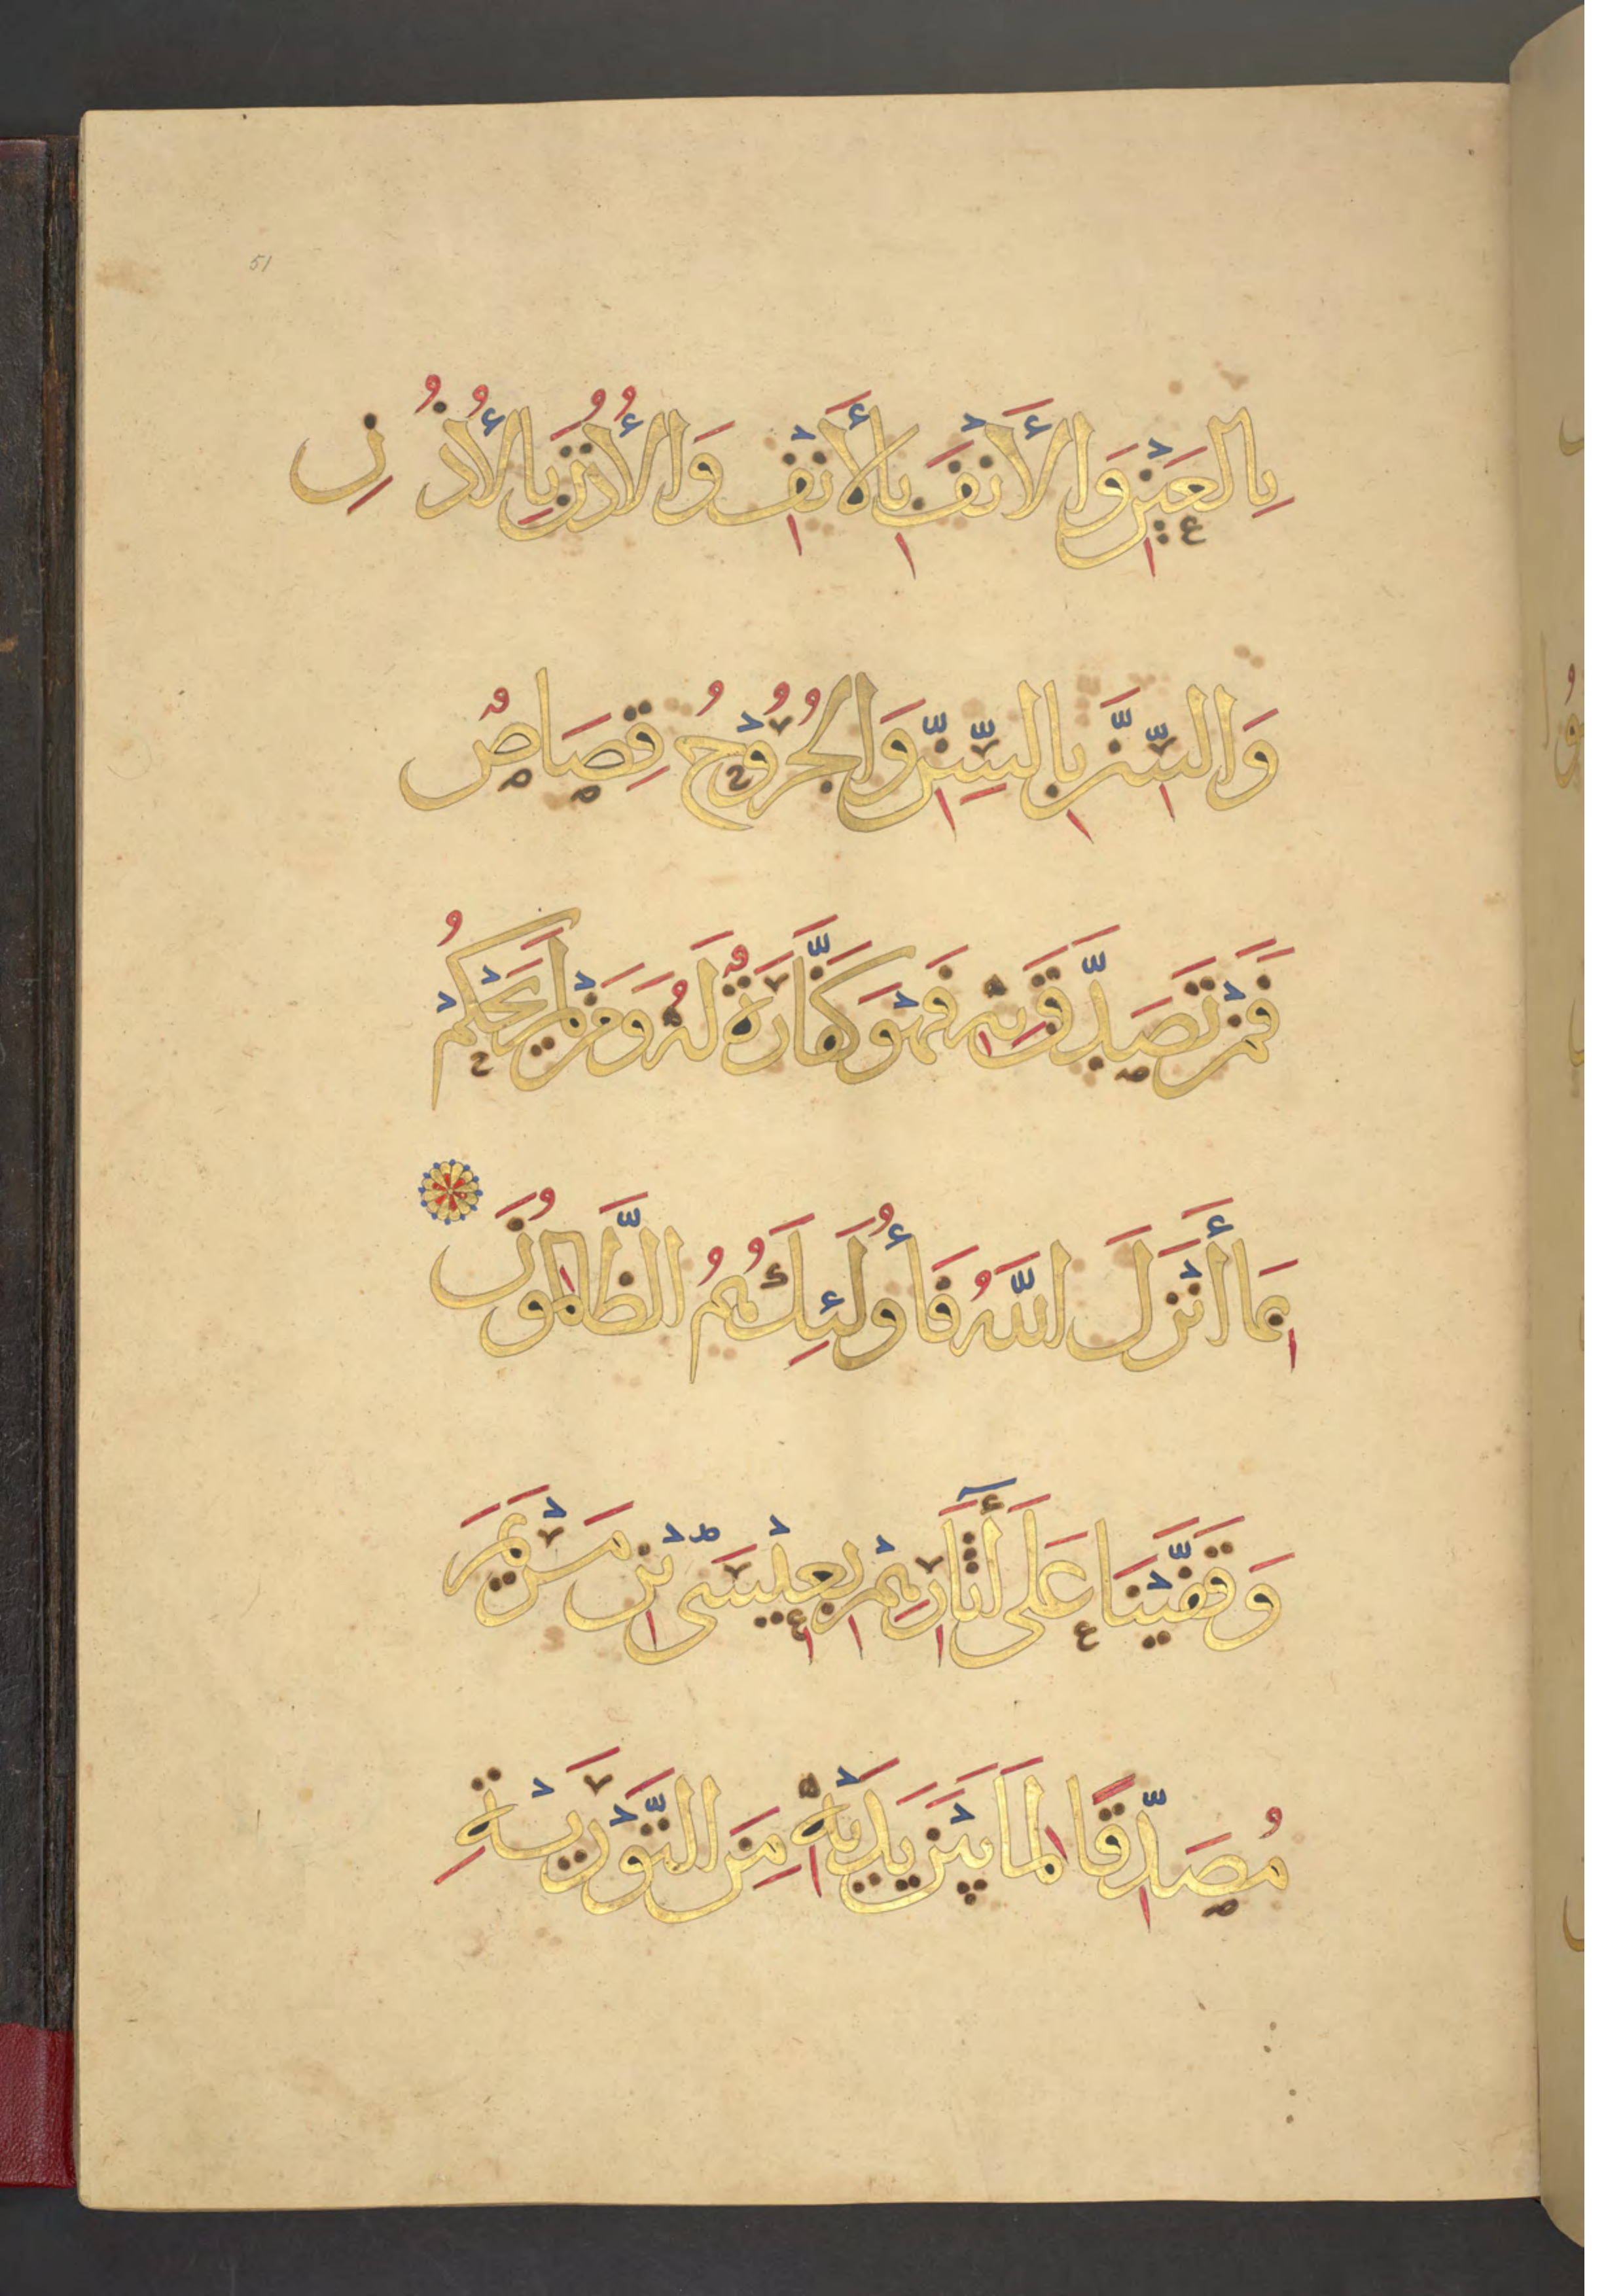 51
بِالْعَيْنِ وَالْأَنْفَ بِالْأَنْفِ وَالْأُذُنَ بِالْأُذُنِ
وَالسِّنَّ بِالسِّنِّ وَالْجُرُوْحُ قِصَاصٌ
فَمَنْ تَصَدَّقَ بِهِ فَهْوَ كَفَّارَةٌ لَهُ وَمَنْ لَمْ يَحْكُمْ
بِمَا أَنْزَلَ اللَّهُ فَأُولَئِكَ هُمُ الظَّالِمُونَ
وَقَفَّيْنَا عَلَى أَثَارِهِمْ بِعِيْسَى بْنِ مَرْيَمَ
مُصَدِّقًا لِمَا بَيْنَ يَدَيْهِ مِنَ التَّوْرَيْةِ